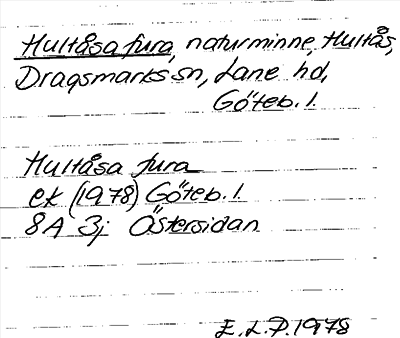 Hultåsa fura, naturminne, Hultås,
Dragsmarks sn, Lane hd,
Göteb. l.
Hultåsa fura
ek (1978) Göteb. l.
8A 3j Östersidan
E.L.P. 1978